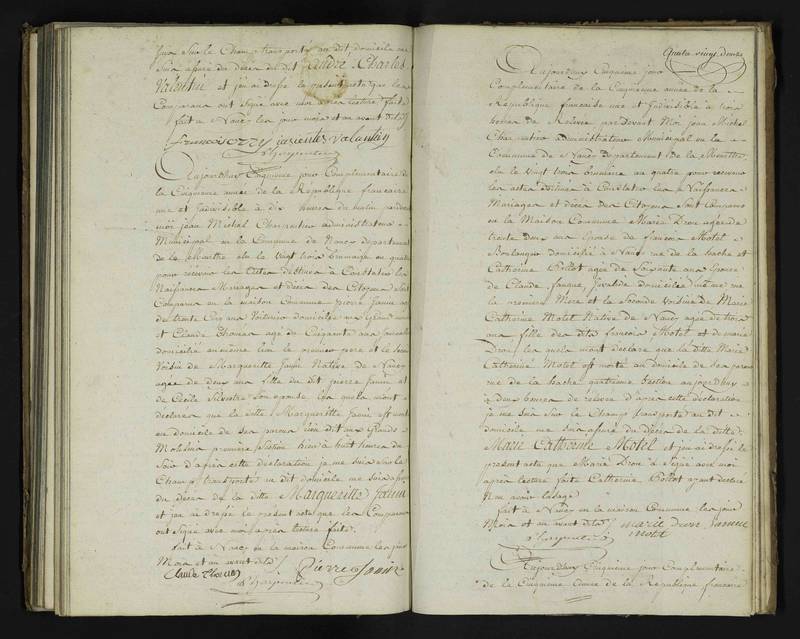 suis sur le Champ transporté au dit domicile me
Suis assuré du décès du dit André Charles
Valentin et j'en ai dressé le présent acte que les
Comparans ont signé avec moi après lecture faite
fait à Nancy les jour mois et an avant dits
valentin
Charpentier
Aujourdhuy Cinquieme jour Complementaire de
la Cinquieme année de la République francaise
une et Indivisible à dix heures du matin pardevant
moi jean Michel Charpentier administrateur
Municipal en la Commune de Nancy departement
de la Meurthe élu le vingt trois brumaire an quatre
pour recevoir les Actes destinés à Constater les
Naissances Mariages et décès des Citoyens Sont
Comparus en la maison Commune pierre Janin agé
de trente Cinq ans Voiturier domicilié
et Claude Thouvin agé de Cinquante ans
domicilié en même lieu le premier pere et le second
Voisin de Margueritte Janin Native de Nancy
agée de deux ans fille du dit pierre Janin et
de Cécile Silvestre Son épouse les quels m'ont
déclaré que la ditte Margueritte Janin est morte
au domicile de Ses pere et mere dit aux Grands
Moulins première Section hier à huit heures du
Soir d'après cette déclaration je me suis sur le
Champ transporté au dit domicile me suis assuré
du décès de la ditte Margueritte Janin
et j'en ai dressé le présent acte que les Comparans
ont Signé avec moi après lecture faite
fait à Nancy en la maison Commune les jour
Mois et an avant dits
Claude Thouvin Pierre Janin
Charpentier
Quatre vingt douze
Aujourdhuy Cinquieme jour
Complementaire de la Cinquieme année de la
République francaise une et Indivisible à trois
heures de Relevée pardevant Moi jean Michel
Charpentier administrateur Municipal en la
Commune de Nancy departement de la Meurthe
élu le vingt trois brumaire an quatre pour recevoir
les actes destinés à Constater les Naissances
Mariages et décès des Citoyens Sont Comparus
en la Maison Commune Marie Drou agée de
trente deux ans Epouse de francois Motel
Boulanger domicilié à Nancy rue de la hache et
Catherine Bottot agée de Soixante ans Epouse
de Claude Invalide domiciliée même rue
la premiere Mere et la Seconde Voisine de Marie
Catherine Motel Native de Nancy agée de trois
ans fille des dits francois Motel et de marie
Drou les quels m'ont déclaré que la ditte Marie
Catherine Motel est morte au domicile de Ses pere
rue de la hache quatrieme Section aujourdhuy
à deux heures de relevée d'après cette déclaration
je me suis sur le Champ transporté au dit
domicile me suis assuré du décès de la ditte
Marie Catherine Motel et j'en ai dressé le
présent acte que Marie Drou a Signé avec moi
après lecture faite Catherine Bottot ayant déclaré
N'en avoir l'usage
fait à Nancy en la maison Commune les jour
Mois et an avant dits marie
Charpentier motel
Aujourdhuy Cinquieme jour Complementaire
de la Cinquieme année de la République francaise